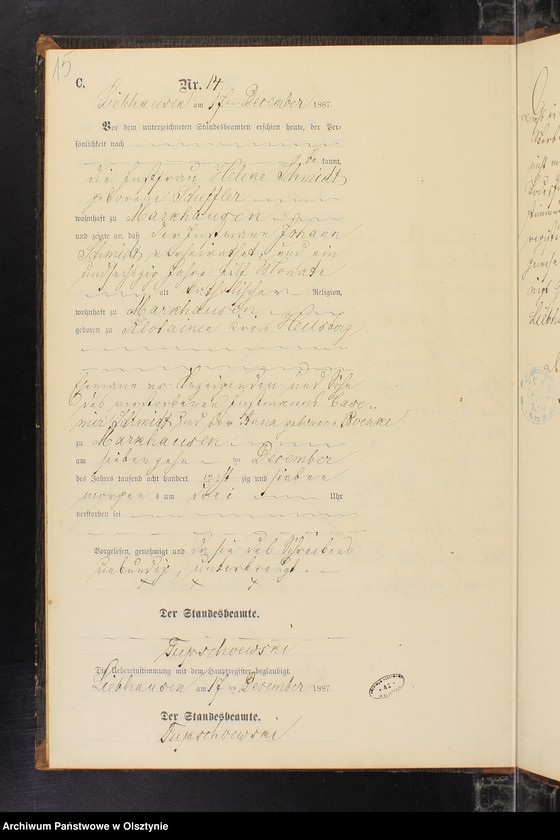 15
C.
Nr. 14
Liebhausen am 17ten December 1887.
Vor dem unterzeichneten Standesbeamten erschien heute, der Per-
sönlichkeit nach
be kannt,
die Instfrau Helene Schmidt
geborene Schöffler
wohnhaft zu Markhausen
und zeigte an, daß der Instmann Johann
Schmidt, verheirathet, und ein
und sechszig Jahre Monate
alt katholischer Religion,
wohnhaft zu Markhausen
geboren zu Kreis Heilsberg
Ehemann der Anzeigenden und Sohn
des verstorbenen Instmanns Case-
mir Schmidt und der Anna geborene
zu Markhausen
am siebenzehn ten December
des Jahres tausend acht hundert acht zig und sieben
morgens um drei Uhr
verstorben sei
Vorgelesen, genehmigt und da sie des Schreibens
unkundig, unterkreuzt.
x x x
Der Standesbeamte.
Die Uebereinstimmung mit dem Hauptregister beglaubigt.
Liebhausen am 17 ten December 1887.
Der Standesbeamte.
42
Archiwum Państwowe w Olsztynie